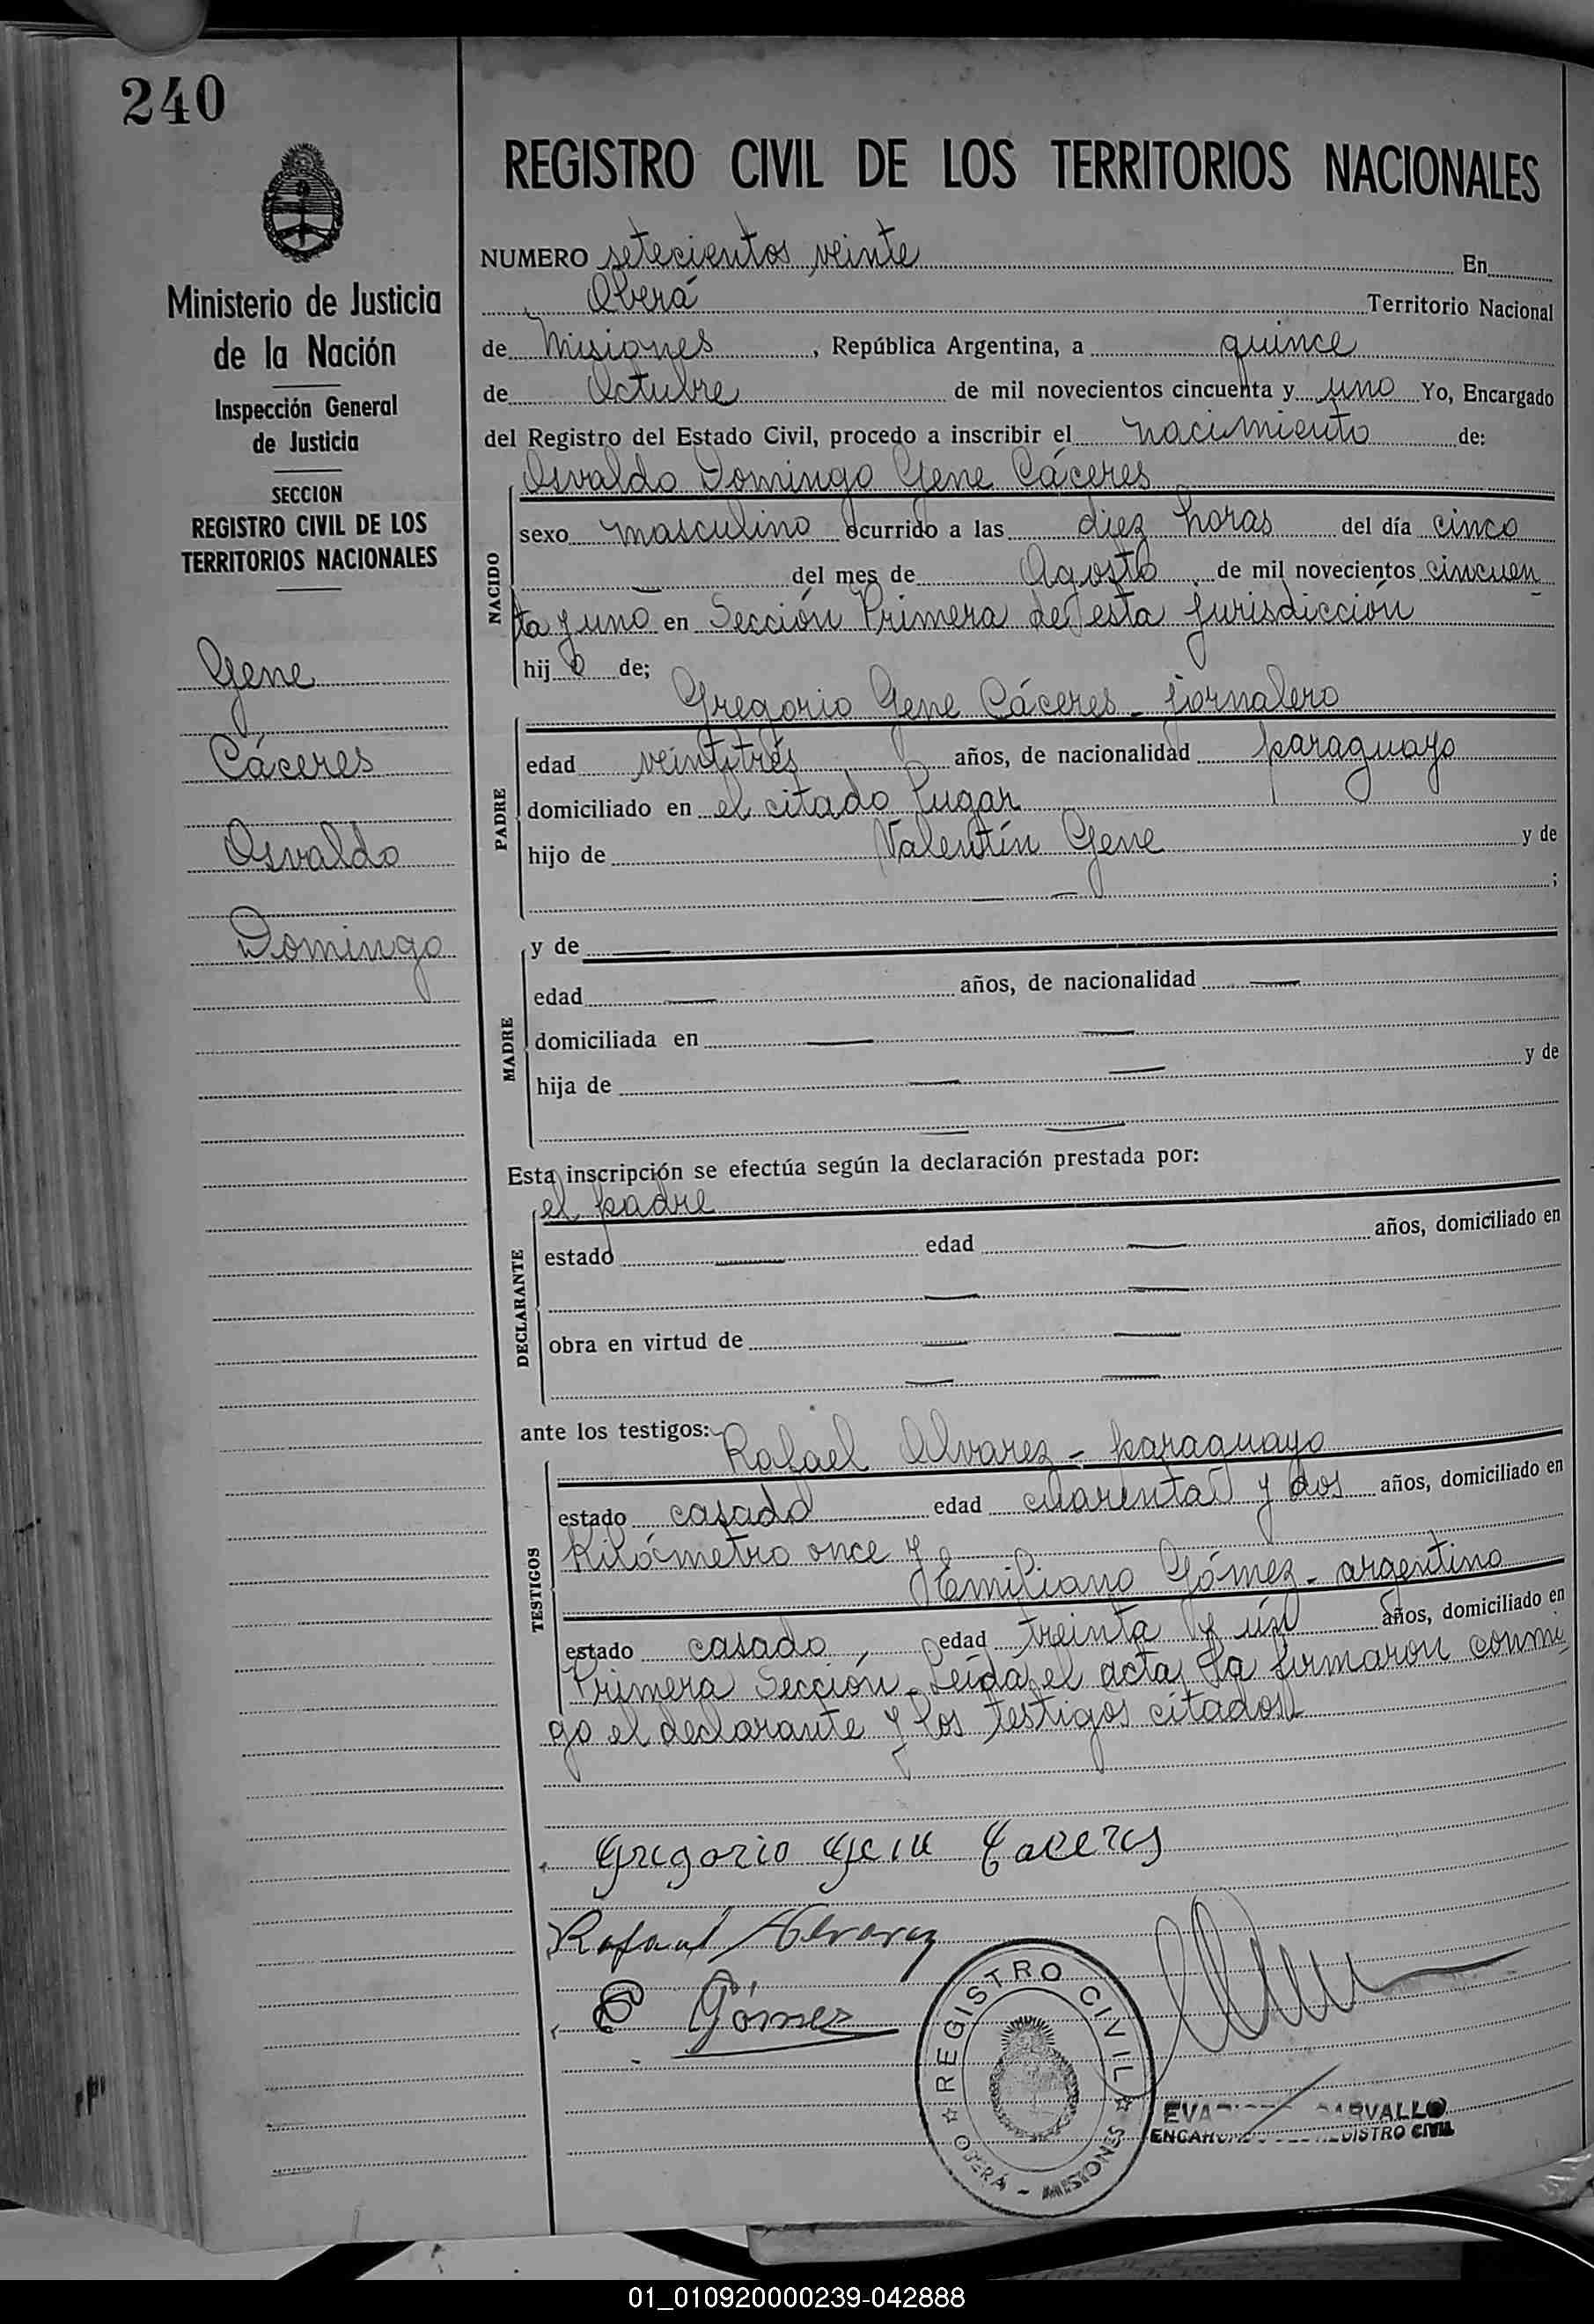 240
Ministerio de Justicia
de la Nación
Inspección General
de Justicia
SECCION
REGISTRO CIVIL DE LOS
TERRITORIOS NACIONALES
Gene
Cáceres
Osvaldo
Domingo
REGISTRO CIVIL DE LOS TERRITORIOS NACIONALES
NUMERO setecientos veinte En
Oberá Territorio Nacional
de Misiones, República Argentina, a quince
de Octubre de mil novecientos cincuenta y uno Yo, Encargado
del Registro del Estado Civil, procedo a inscribir el nacimiento de:
NACIDO
Osvaldo Domingo Gene Cáceres
sexo masculino ocurrido a las diez horas del día cinco
del mes de Agosto de mil novecientos cincuen
ta y uno en Sección Primera de esta jurisdicción
hij o de;
PADRE
Gregorio Gene Cáceres - jornalero
edad veintitrés años, de nacionalidad paraguayo
domiciliado en el citado lugar
hijo de Valentín Gene y de
;
MADRE
y de
edad años, de nacionalidad
domiciliada en
hija de y de
Esta inscripción se efectúa según la declaración prestada por:
DECLARANTE
el padre
estado edad años, domiciliado en
obra en virtud de
ante los testigos: Rafael Alvarez - paraguayo
TESTIGOS
estado casado edad cuarenta y dos años, domiciliado en
Kilómetro once y
Emiliano Gómez - argentino
estado casado edad treinta y ún años, domiciliado en
Primera Sección. Leída el acta, la firmaron conmi
go el declarante y los testigos citados
Gregorio Gene Caceres
Rafael Alvarez
E Gómez
REGISTRO CIVIL
OBERÁ - MISIONES
CARVALLO
REGISTRO CIVIL
01_010920000239-042888